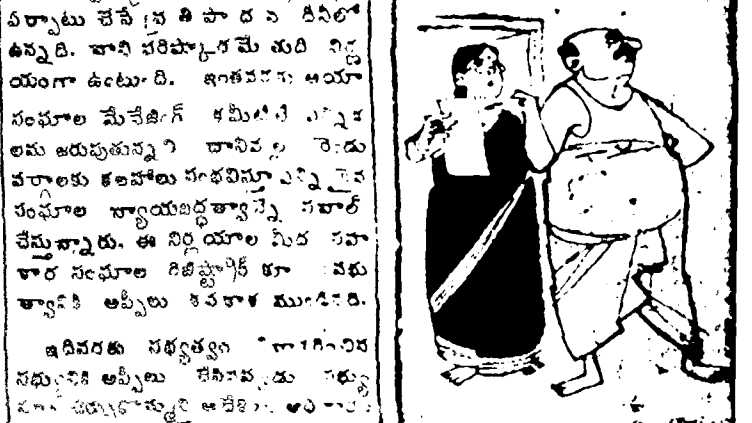 ఏర్పాటు చేసే ప్రతిపాదన దీనిలో
ఉన్నది. దాని పరిష్కారమే తుది నిర్ణ
యంగా ఉంటుంది. ఇంతవరకు ఆయా
సంఘాల మేనేజింగ్ కమిటీల ఎన్నిక
లను జరుపుతున్న దానివల్ల రెండు
వర్గాలకు కలహాలు సంభవిస్తూ ఎన్నికైన
సంఘాల న్యాయబద్ధత్వాన్నే సవాల్
చేస్తున్నారు. ఈ నిర్ణయాల మీద సహ
కార సంఘాల రిజిష్ట్రార్ కూ
త్వానికి అప్పీలు అవకాశ ముండినది.
ఇదివరకు సభ్యత్వం నిరాకరించిన
సభ్యునికి అప్పీలు చేసినప్పుడు సభ్యు
చేర్చుకొమ్మని ఆదేశించు